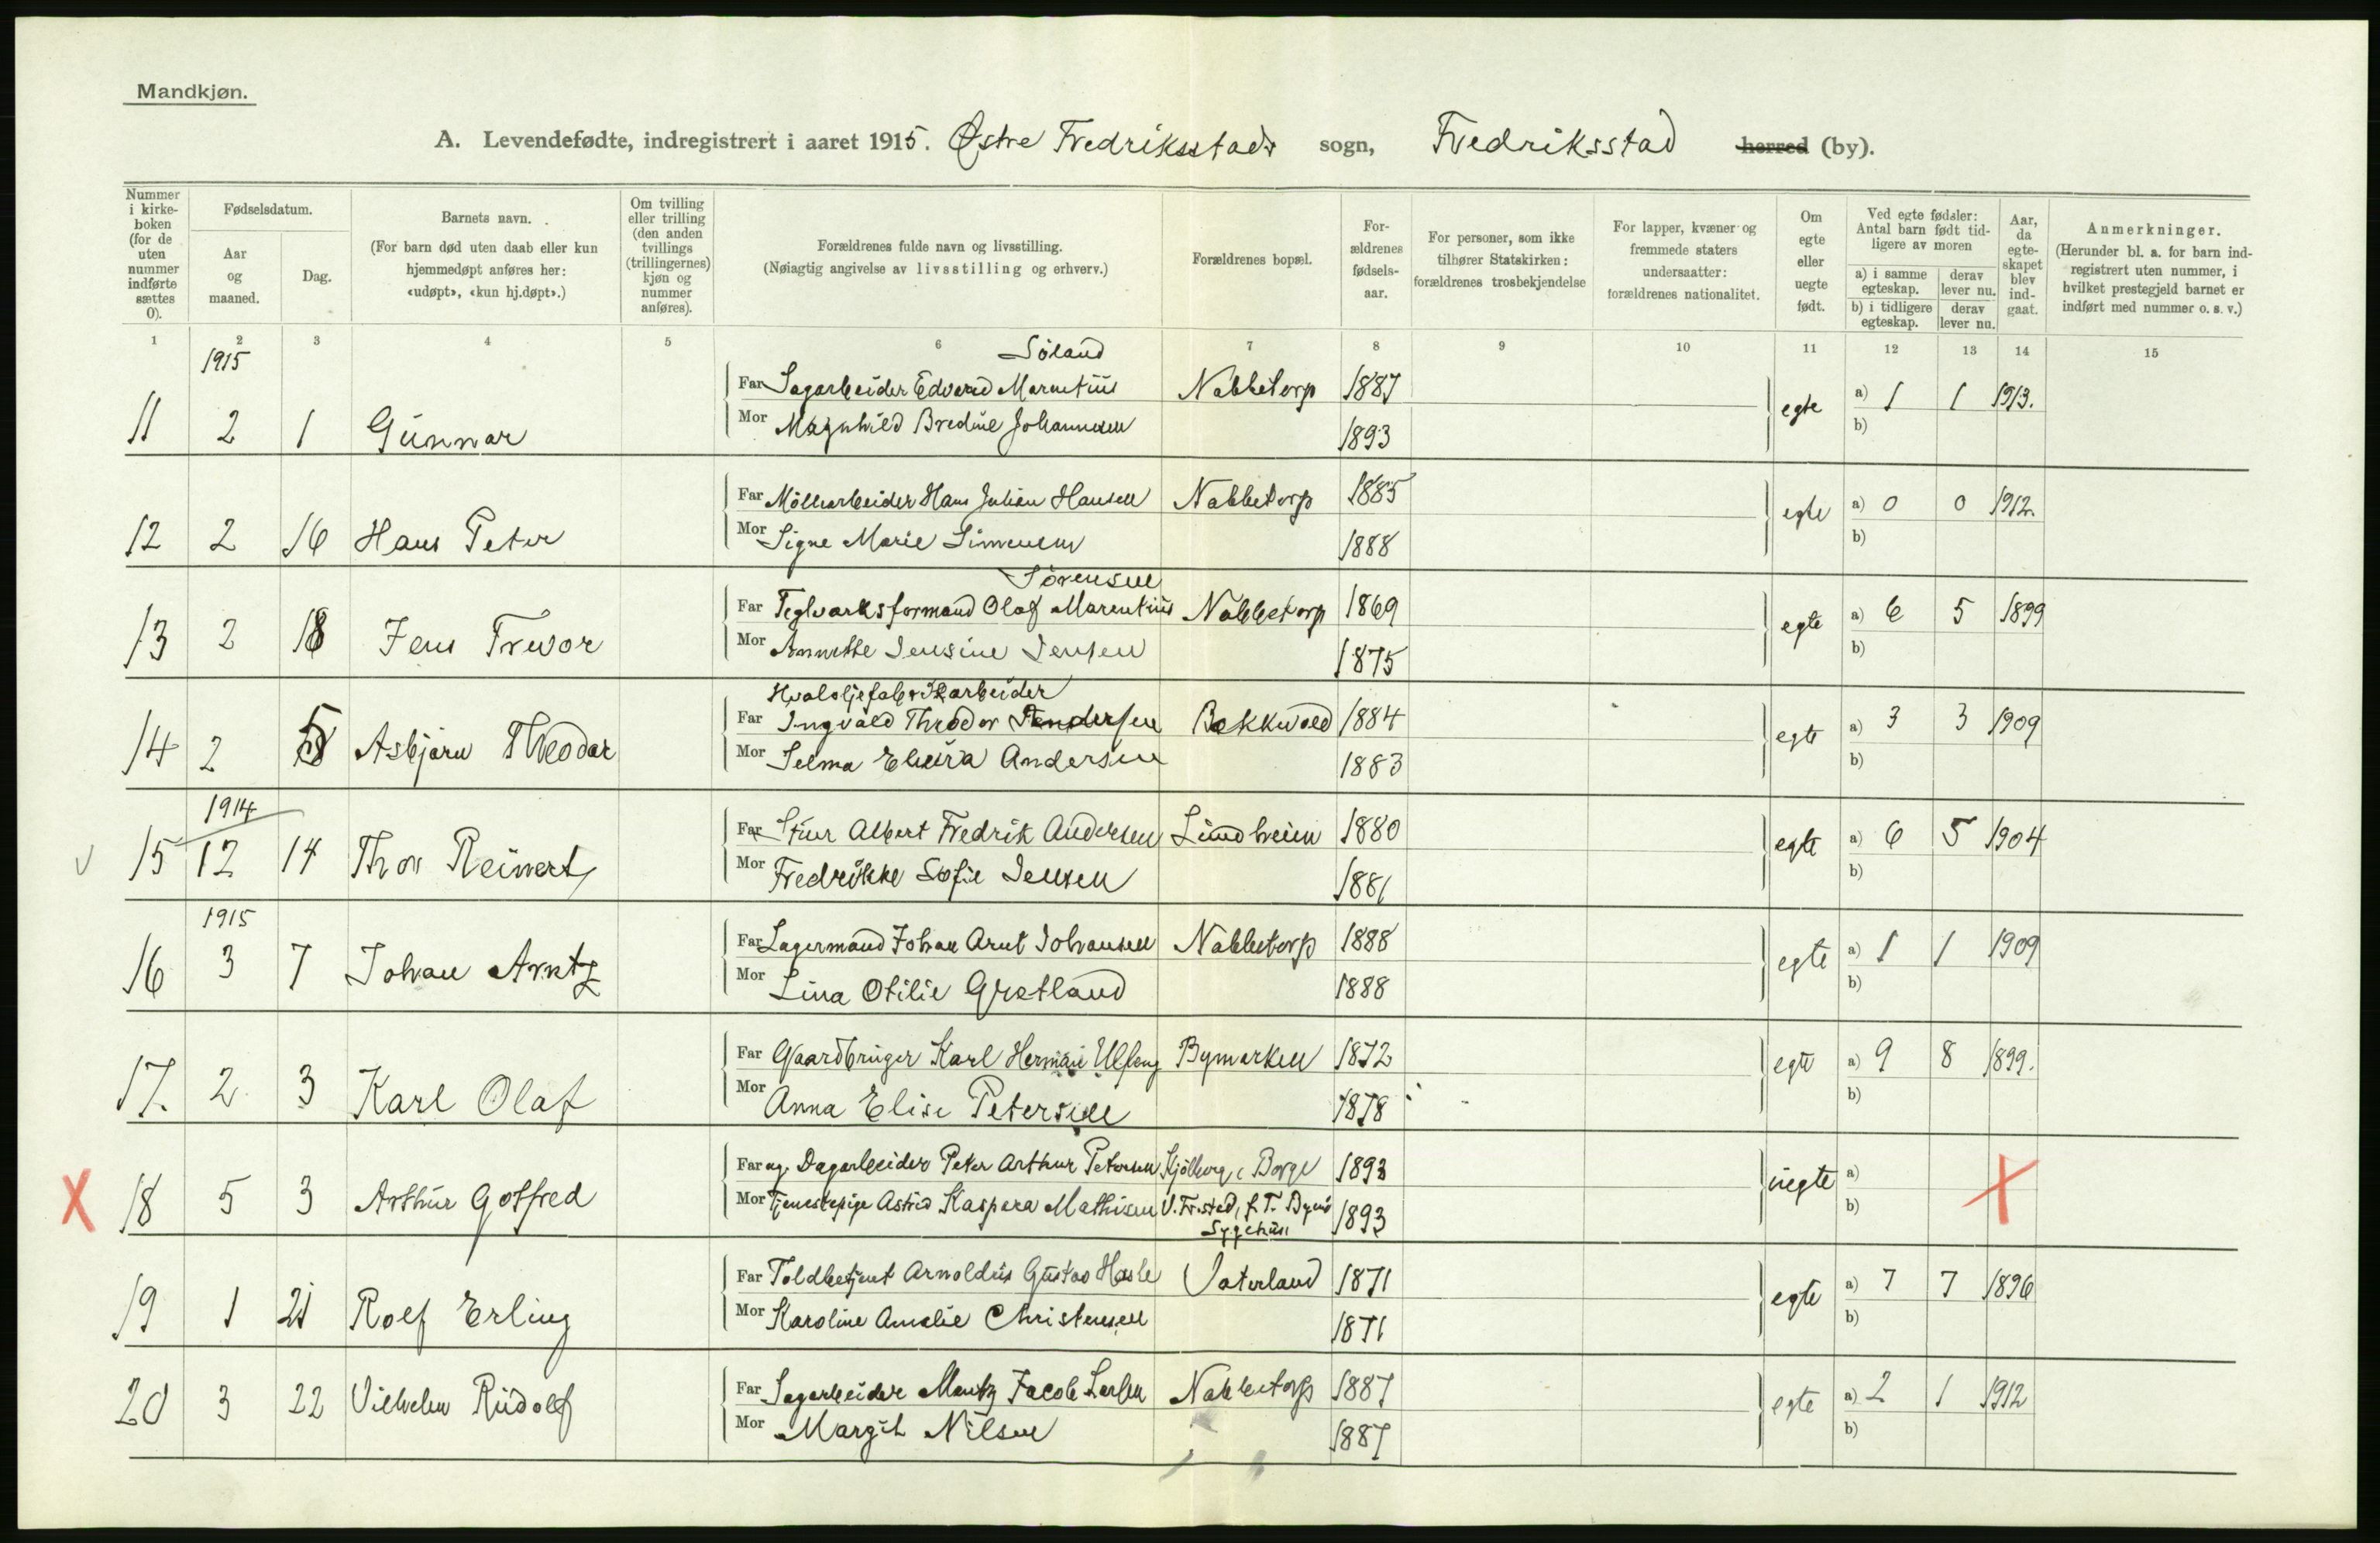 Mandkjøn.
A. Levendefødte, indregistrert i aaret 1915. Østre Fredriksstads sogn, Fredriksstad herred (by).
Nummer i kirkeboken (for de uten nummer indførte sættes 0).
Fødselsdatum.
Aar og maaned.
Dag.
Barnets navn.
(For barn død uten daab eller kun hjemmedøpt anføres her: «udøpt», «kun hj.døpt».)
Om tvilling eller trilling (den anden tvillings (trillingernes) kjøn og nummer anføres).
Forældrenes fulde navn og livsstilling.
(Nøiagtig angivelse av livsstilling og erhverv.)
Forældrenes bopæl.
Forældrenes fødselsaar.
For personer, som ikke tilhører Statskirken: forældrenes trosbekjendelse
For lapper, kvæner og fremmede staters undersaatter: forældrenes nationalitet.
Om egte eller uegte født.
Ved egte fødsler: Antal barn født tidligere av moren
a) i samme egteskap.
derav lever nu.
b) i tidligere egteskap.
derav lever nu.
Aar, da egteskapet blev indgaat.
Anmerkninger.
(Herunder bl. a. for barn indregistrert uten nummer, i hvilket prestegjeld barnet er indført med nummer o. s. v.)
1 2 3 4 5 6 7 8 9 10 11 12 13 14 15
1915
Söland
Far Sagarbeider Edvard Marentius Nabbetorp 1887
11 2 1 Gunnar egte a) 1 1 1913.
Mor Magnhild Bredine Johannesen 1893
b)
Far Möllearbeider Hans Julian Hansen Nabbetorp 1885
12 2 16 Hans Peter egte a) 0 0 1912.
Mor Signe Marie Simensen 1888
b)
Sörensen
Far Teglværksformand Olaf Marentius Nabbetorp 1869
13 2 18 Jens Trevor egte a) 6 5 1899
Mor Annette Jensine Jensen 1875
b)
Hvaloljefabrikarbeider
Far Ingvald Theodor Andersen Bakkevold 1884
14 2 5 Asbjørn Theodor egte a) 3 3 1909
Mor Selma Elvira Andersen 1883
b)
1914
Far Stuer Albert Fredrik Andersen Lundheim 1880
15 12 14 Thor Reinert egte a) 6 5 1904
Mor Fredrikke Sofie Jensen 1881
b)
1915
Far Lagermand Johan Arnt Johansen Nabbetorp 1888
16 3 7 Johan Arntz egte a) 1 1 1909
Mor Lina Otilie Grøtland 1888
b)
Far Gaardbruger Karl Herman Ulfeng Bymarken 1872
17. 2 3 Karl Olaf egte a) 9 8 1899.
Mor Anna Elise Petersen 1878
b)
Far ug. Dagarbeider Peter Arthur Petersen Kjölberg, Borge 1893
X 18 5 3 Arthur Gotfred uegte a) X
Mor Tjenestepige Astrid Kaspera Mathisen V. Fr.stad, f. T. Byens Sygehus 1893
b)
Far Toldbetjent Arnoldus Gustav Hasle Vaterland 1871
19 1 21 Rolf Erling egte a) 7 7 1896
Mor Karoline Amalie Christensen 1871
b)
Far Sagarbeider Mentz Jacob Larsen Nabbetorp 1887
20 3 22 Vilhelm Rudolf egte a) 2 1 1912
Mor Margit Nilsen 1887
b)